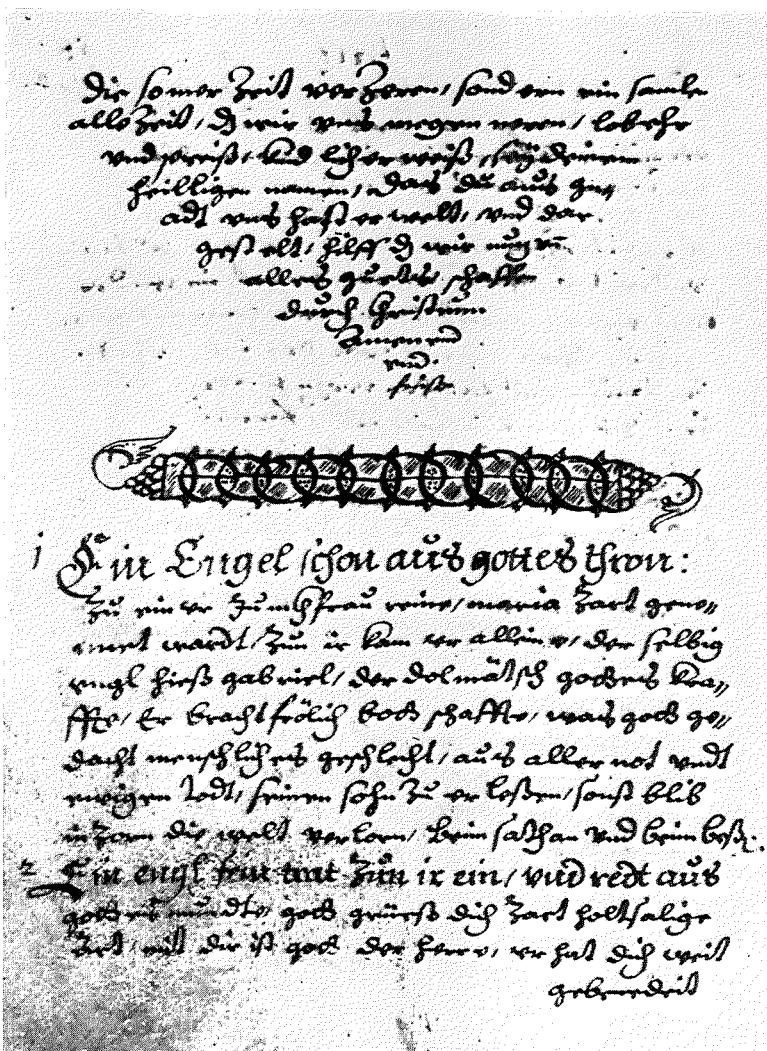 die somer Zeit ver Zeren, sondern ein samle
alle Zeit, dz wir uns megen neren, lob ehr
und preiß, kind lich er weiß, seÿ deinem
heilligen namen, das du aus gn
adt uns hast er welt, und dar
gestelt, hilff dz wir nun
alles guets schaffen
durch Christum
Amen
und
1 Ein Engel schon aus gottes thron:
Zu ein er Junckfrau reine, maria Zart gene„
nnet wardt, Zun ir kam er alleine, der selbig
engl hieß gabriel, der dolmätsch gottes kra„
ffte, Er bracht frölich bott schaffte, wais gott ge„
dacht menschliches geschlecht, aus aller not undt
ewigen Todt, seinen sohn Zu erleßen, sonst blib
in Zorn die welt verlorn, beim sathan und beim beß
2 Ein engl fein trat Zun ir ein, und redt aus
gottes mundte, gott grüess dich Zart holtsalige
Art, mit dir ist gott der herre, er hat dich weit
gebenedeit